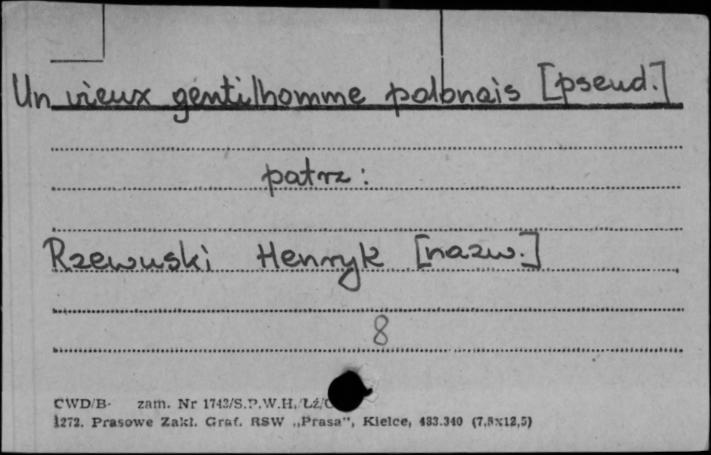 Un vieux gentilhomme polonais [pseud.]
patrz:
Rzewuski Henryk [nazw.]
8
CWD/B- zam. Nr 1743/S.P.W.H./Łż/
1272. Prasowe Zakł. Graf. RSW „Prasa", Kielce, 483.340 (7,5x12,5)